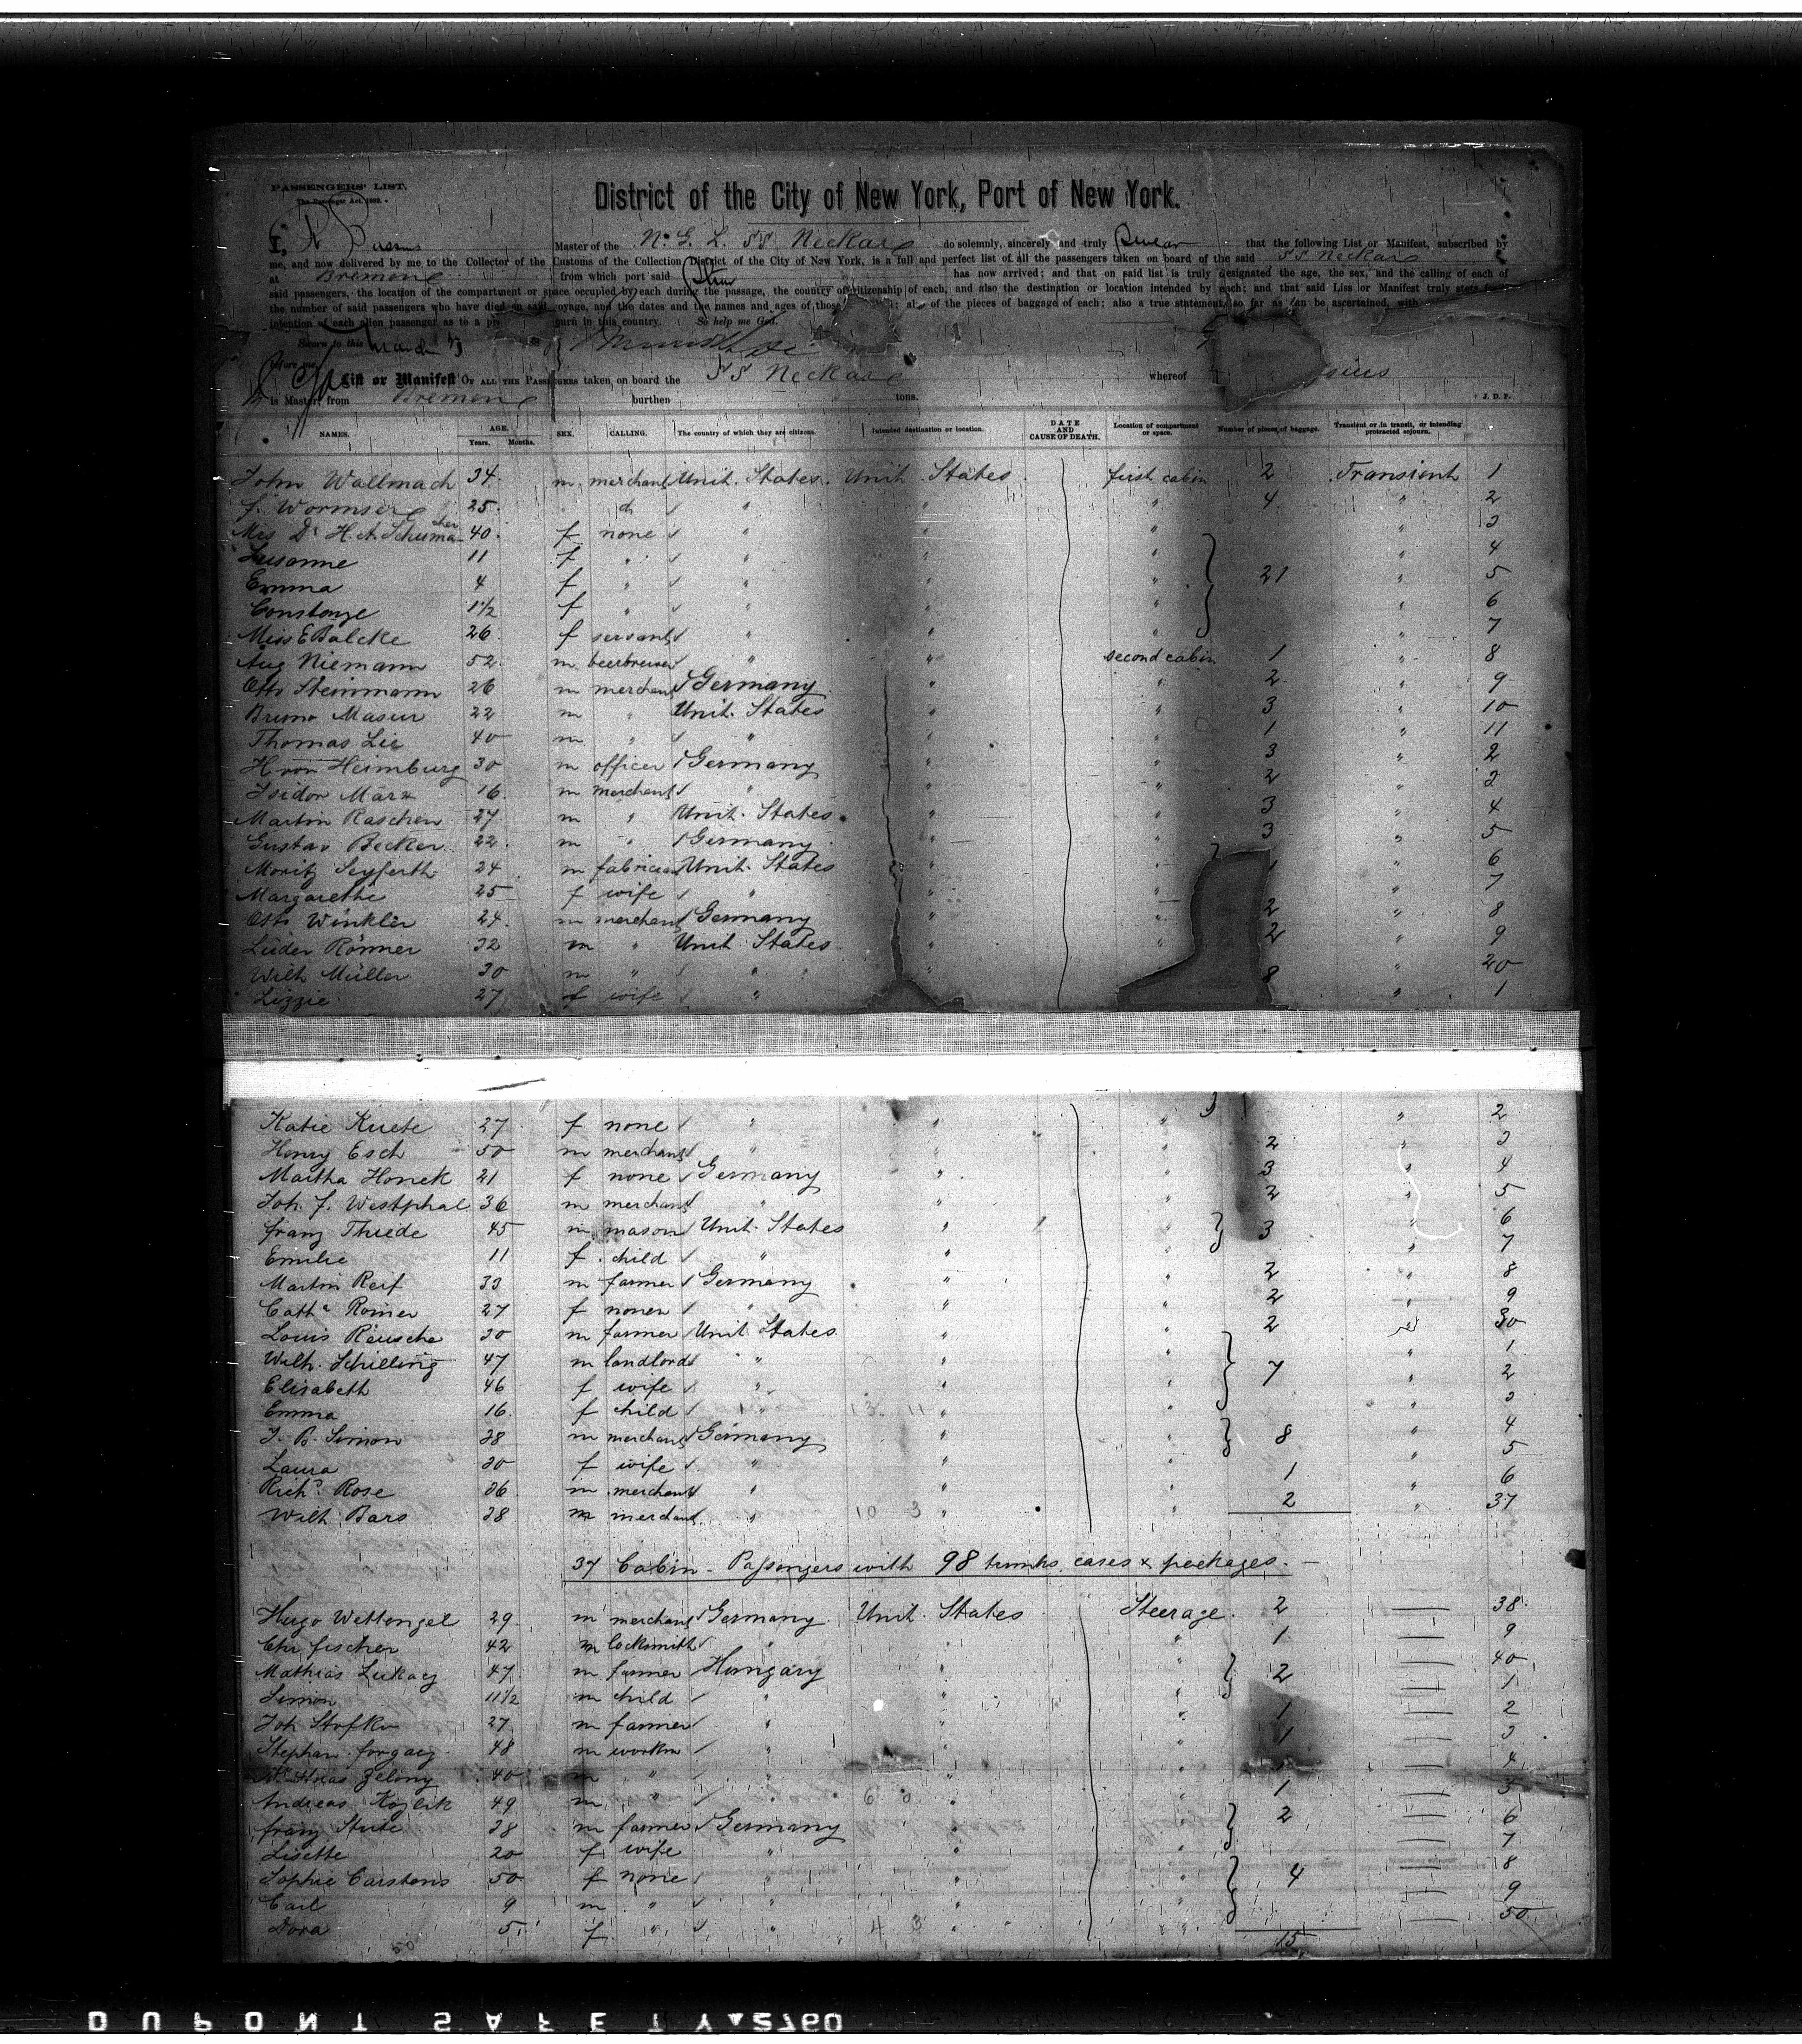 PASSENGERS' LIST.
The Passenger Act, 1882.
District of the City of New York, Port of New York.
I, Master of the N. G. L. SS Neckar do solemnly, sincerely and truly swear that the following List or Manifest, subscribed by
me, and now delivered by me to the Collector of the Customs of the Collection District of the City of New York, is a full and perfect list of all the passengers taken on board of the said SS Neckar
at Bremen from which port said Str has now arrived; and that on said list is truly designated the age, the sex, and the calling of each of
said passengers, the location of the compartment or space occupied by each during the passage, the country of citizenship of each, and also the destination or location intended by each; and that said List or Manifest truly sets
the number of said passengers who have died on said voyage, and the dates and the names and ages of those of the pieces of baggage of each; also a true statement, so far as can be ascertained, with
intention of each alien passenger as to a in this country. So help me God.
Sworn to this March
before me
List or Manifest OF ALL THE PASSENGERS taken on board the SS Neckar whereof
is Master, from Bremen burthen tons.
J. D. P.
NAMES. AGE. Years. Months. SEX. CALLING. The country of which they are citizens. Intended destination or location. DATE AND CAUSE OF DEATH. Location of compartment or space. Number of pieces of baggage. Transient or in transit, or intending protracted sojourn.
John Wallmach 34 m merchant Unit. States Unit States first cabin 2 Transient 1
J. Wormser 25 d " " " 4 " 2
Mrs Dr H. A. Schumacher 40 f none " " " 3
Susanne 11 f " " " " " 4
Emma 4 f " " " " 21 " 5
Constanze 1 1/2 f " " " " " 6
Miss E Balcke 26 f servant " " " " 7
Aug Niemann 52 m beerbrewer " " second cabin 1 " 8
Otto Steinmann 26 m merchant Germany " " 2 " 9
Bruno Masur 22 m " Unit. States " " 3 " 10
Thomas Lie 40 m " " " " 1 " 11
H von Heimburg 30 m officer Germany " " 3 " 2
Isidor Marx 16 m merchant " " " 2 " 3
Martin Raschen 27 m " Unit. States " " 3 " 4
Gustav Becker 22 m " Germany " " 3 " 5
Moritz Seyferth 24 m fabrician Unit. States " " 6
Margarethe 25 f wife " " " " 7
Otto Winkler 24 m merchant Germany " " 2 " 8
Lüder Rönner 32 m " Unit States " " 2 " 9
Wilh Müller 30 m " " " " 20
Lizzie 27 f wife " 8 " 1
Katie Kuete 27 f none " " " " 2
Henry Esch 50 m merchant " " " 2 " 3
Martha Honek 21 f none Germany " " 3 " 4
Joh. J. Westphal 36 m merchant " " " 2 " 5
Franz Thiede 45 m mason Unit. States " " 3 " 6
Emilie 11 f child " " " " 7
Martin Reif 33 m farmer Germany " " 2 " 8
Cath. Romer 27 f none " " " 2 " 9
Louis Räusche 30 m farmer Unit. States " " 2 " 30
Wilh. Schilling 47 m landlord " " " " 1
Elisabeth 46 f wife " " " 7 " 2
Emma 16 f child " " " " 3
J. B. Simon 38 m merchant Germany " " 8 " 4
Laura 30 f wife " " " " 5
Richd Rose 36 m merchant " " " 1 " 6
Wilh Bars 38 m merchant " 10 3 " " 2 " 37
37 Cabin - Passengers with 98 trunks, cases & packages. —
Hugo Wettengel 29 m merchant Germany Unit. States Steerage 2 — 38
Chr Fischer 42 m locksmith " " " 1 — 9
Mathias Lukacz 47 m farmer Hungary " " 2 — 40
Simon 11 1/2 m child " " " — 1
Joh Stofko 27 m farmer " " " 1 — 2
Stephan Forgacz 48 m workm " " " 1 — 3
Zelony 40 m " " " " — 4
Andreas Kozlik 49 m " " 6 0 " " 1 — 5
Franz Stute 38 m farmer Germany " " 2 — 6
Lisette 20 f wife " " " — 7
Sophie Carstens 50 f none " " " 4 — 8
Carl 9 m " " " " — 9
Dora 5 f " " 4 3 " " — 50
15
50
DUPONT SAFETY 2760